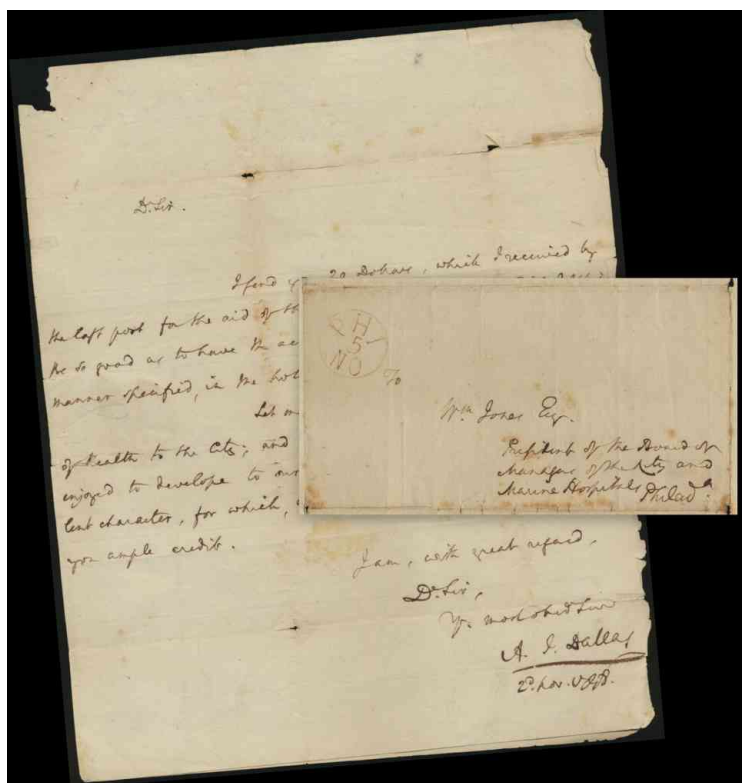 Dr. Sir.
I send y 20 Dollars, which I received by
the last post for the aid of th
be so good as to have the ac
manner specified, in the hos
Let m
of health to the City; and
enjoyed to develope to
lent character, for which,
you ample credit.
I am, with great regard,
Dr. Sir,
Yr. most obed Serv
A. J. Dallas
2d. Nov. 1798.
PH
5
NO
Wm. Jones Esq.
President of the Board of
Managers of the City and
Marine Hospitals Philada.